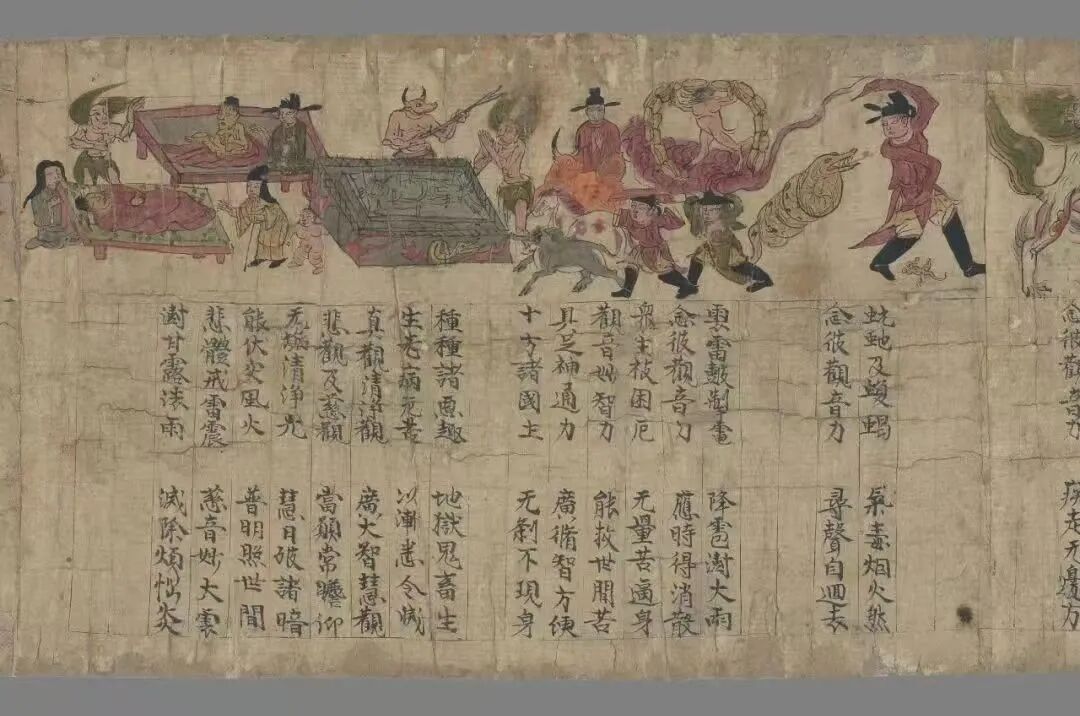 念彼觀音力 疾走无邊方
蚖虵及蝮蝎 氣毒烟火然
念彼觀音力 尋聲自迴去
雲雷鼓掣電 降雹澍大雨
念彼觀音力 應時得消散
衆生被困厄 无量苦逼身
觀音妙智力 能救世間苦
具足神通力 廣脩智方便
十方諸國土 无剎不現身
種種諸惡趣 地獄鬼畜生
生老病死苦 以漸悉令滅
真觀清淨觀 廣大智慧觀
悲觀及慈觀 當願常瞻仰
无垢清淨光 慧日破諸暗
能伏灾風火 普明照世間
悲體戒雷震 慈音妙大雲
澍甘露法雨 滅除煩惱炎